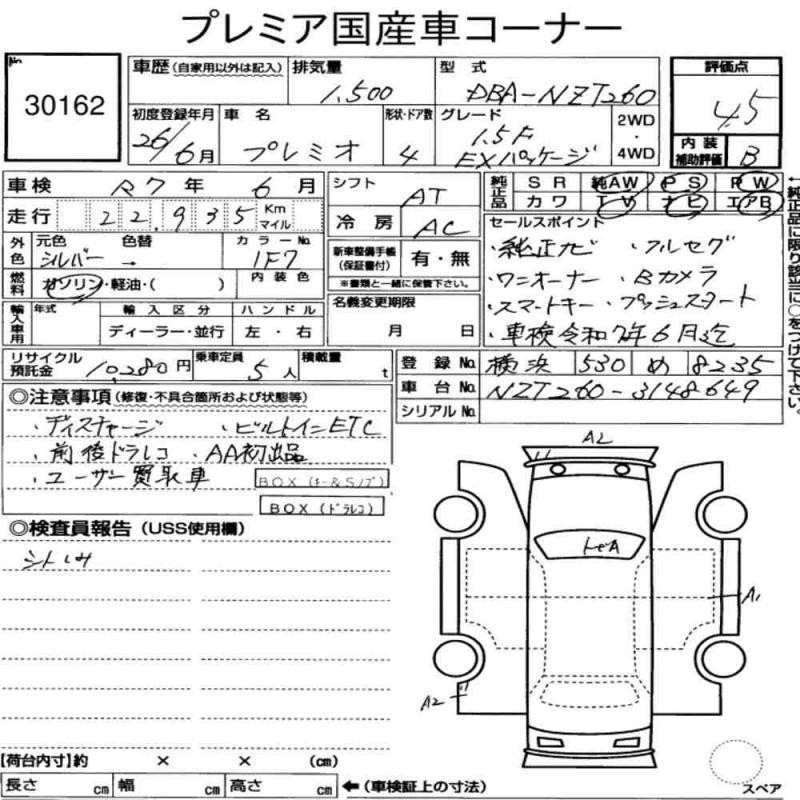 プレミア国産車コーナー
No 30162
車歴 (自家用以外は記入) 排気量 1,500 型式 DBA-NZT260 評価点 4.5
初度登録年月 26/6月 車名 プレミオ 形状・ドア数 4 グレード 1.5F EXパッケージ 2WD・4WD 内装補助評価 B
車検 R7年 6月 シフト AT 純正品 SR 純AW PS PW
走行 22,935 Km マイル 冷房 AC カワ TV ナビ エアB
外色 元色 シルバー 色替 → カラーNo. 1F7 新車整備手帳(保証書付) 有・無 セールスポイント
・純正ナビ ・フルセグ
燃料 ガソリン・軽油・( ) 内装色 ※書類と一緒に保管下さい。 ・ワンオーナー ・Bカメラ
輸入車用 年式 輸入区分 ハンドル 名義変更期限 ・スマートキー ・プッシュスタート
ディーラー・並行 左・右 月 日 ・車検令和7年6月迄
←純正品に限り該当に○をつけて下さい。
リサイクル預託金 10,280円 乗車定員 5人 積載量 t 登録No. 横浜 530 め 8235
車台No. NZT260-3148649
シリアルNo.
◎注意事項(修復・不具合箇所および状態等)
・ディスチャージ ・ビルトインETC
・前後ドラレコ ・AA初出品
・ユーザー買取車 BOX(キー&Sノブ)
BOX(ドラレコ)
◎検査員報告(USS使用欄)
シトしみ
A2
トビA
A1
A2
【荷台内寸】約 × × (cm)
長さ cm 幅 cm 高さ cm ←(車検証上の寸法)
スペア